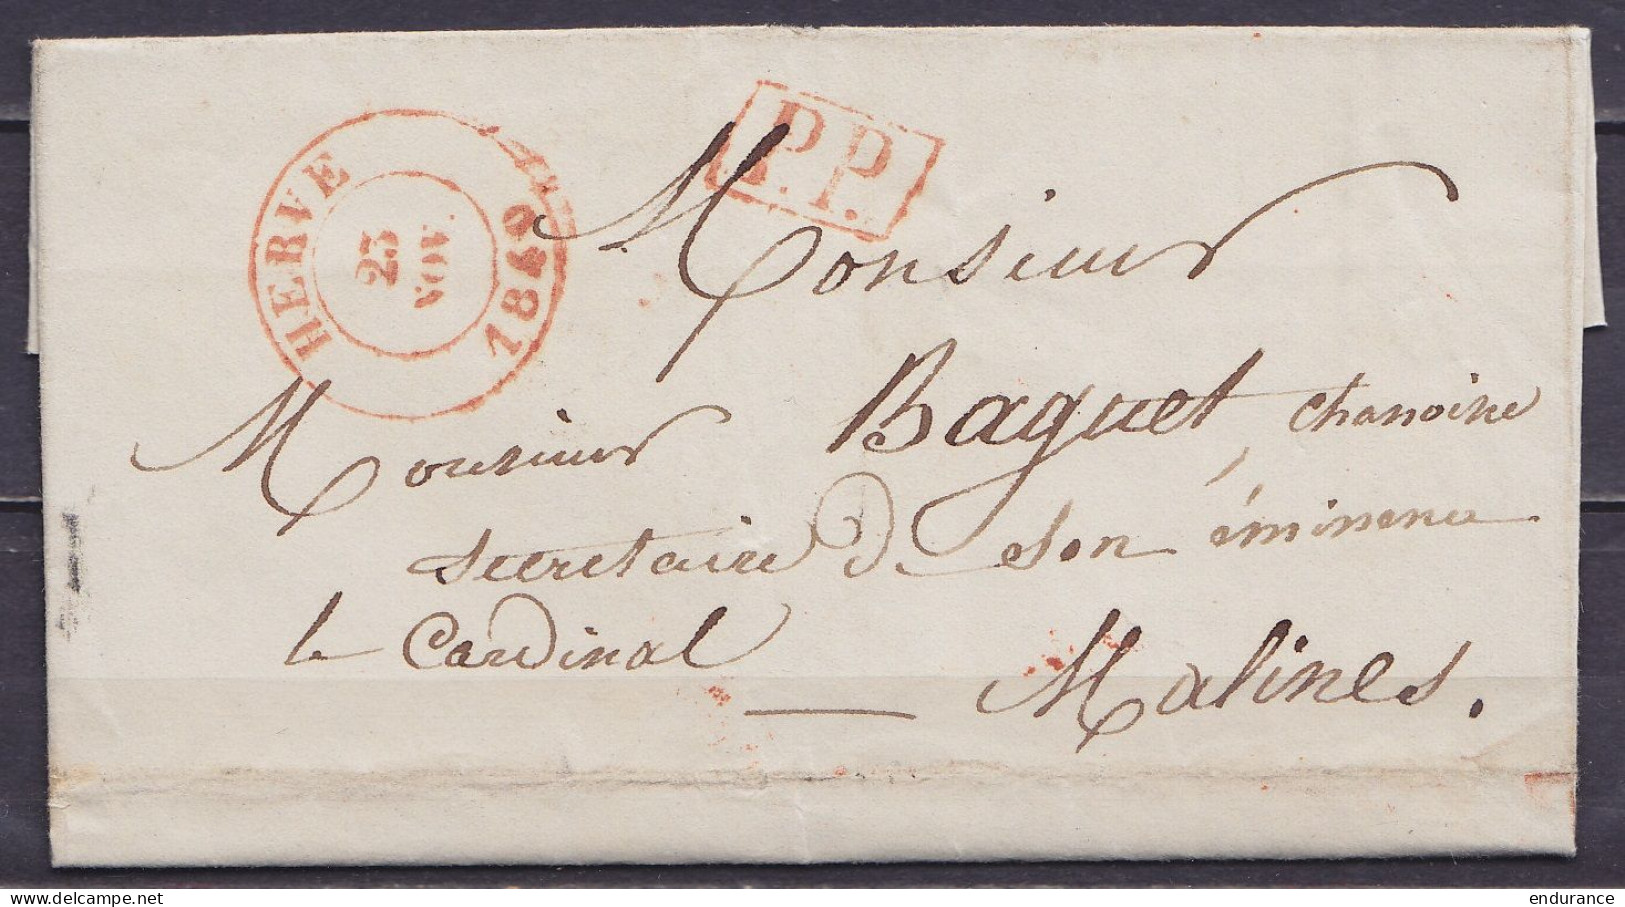 HERVE
23
NOV.
1849
P.P.
Monsieur
Monsieur Baguet, chanoine
secretaire de son éminence
le Cardinal
— Malines.
endurance